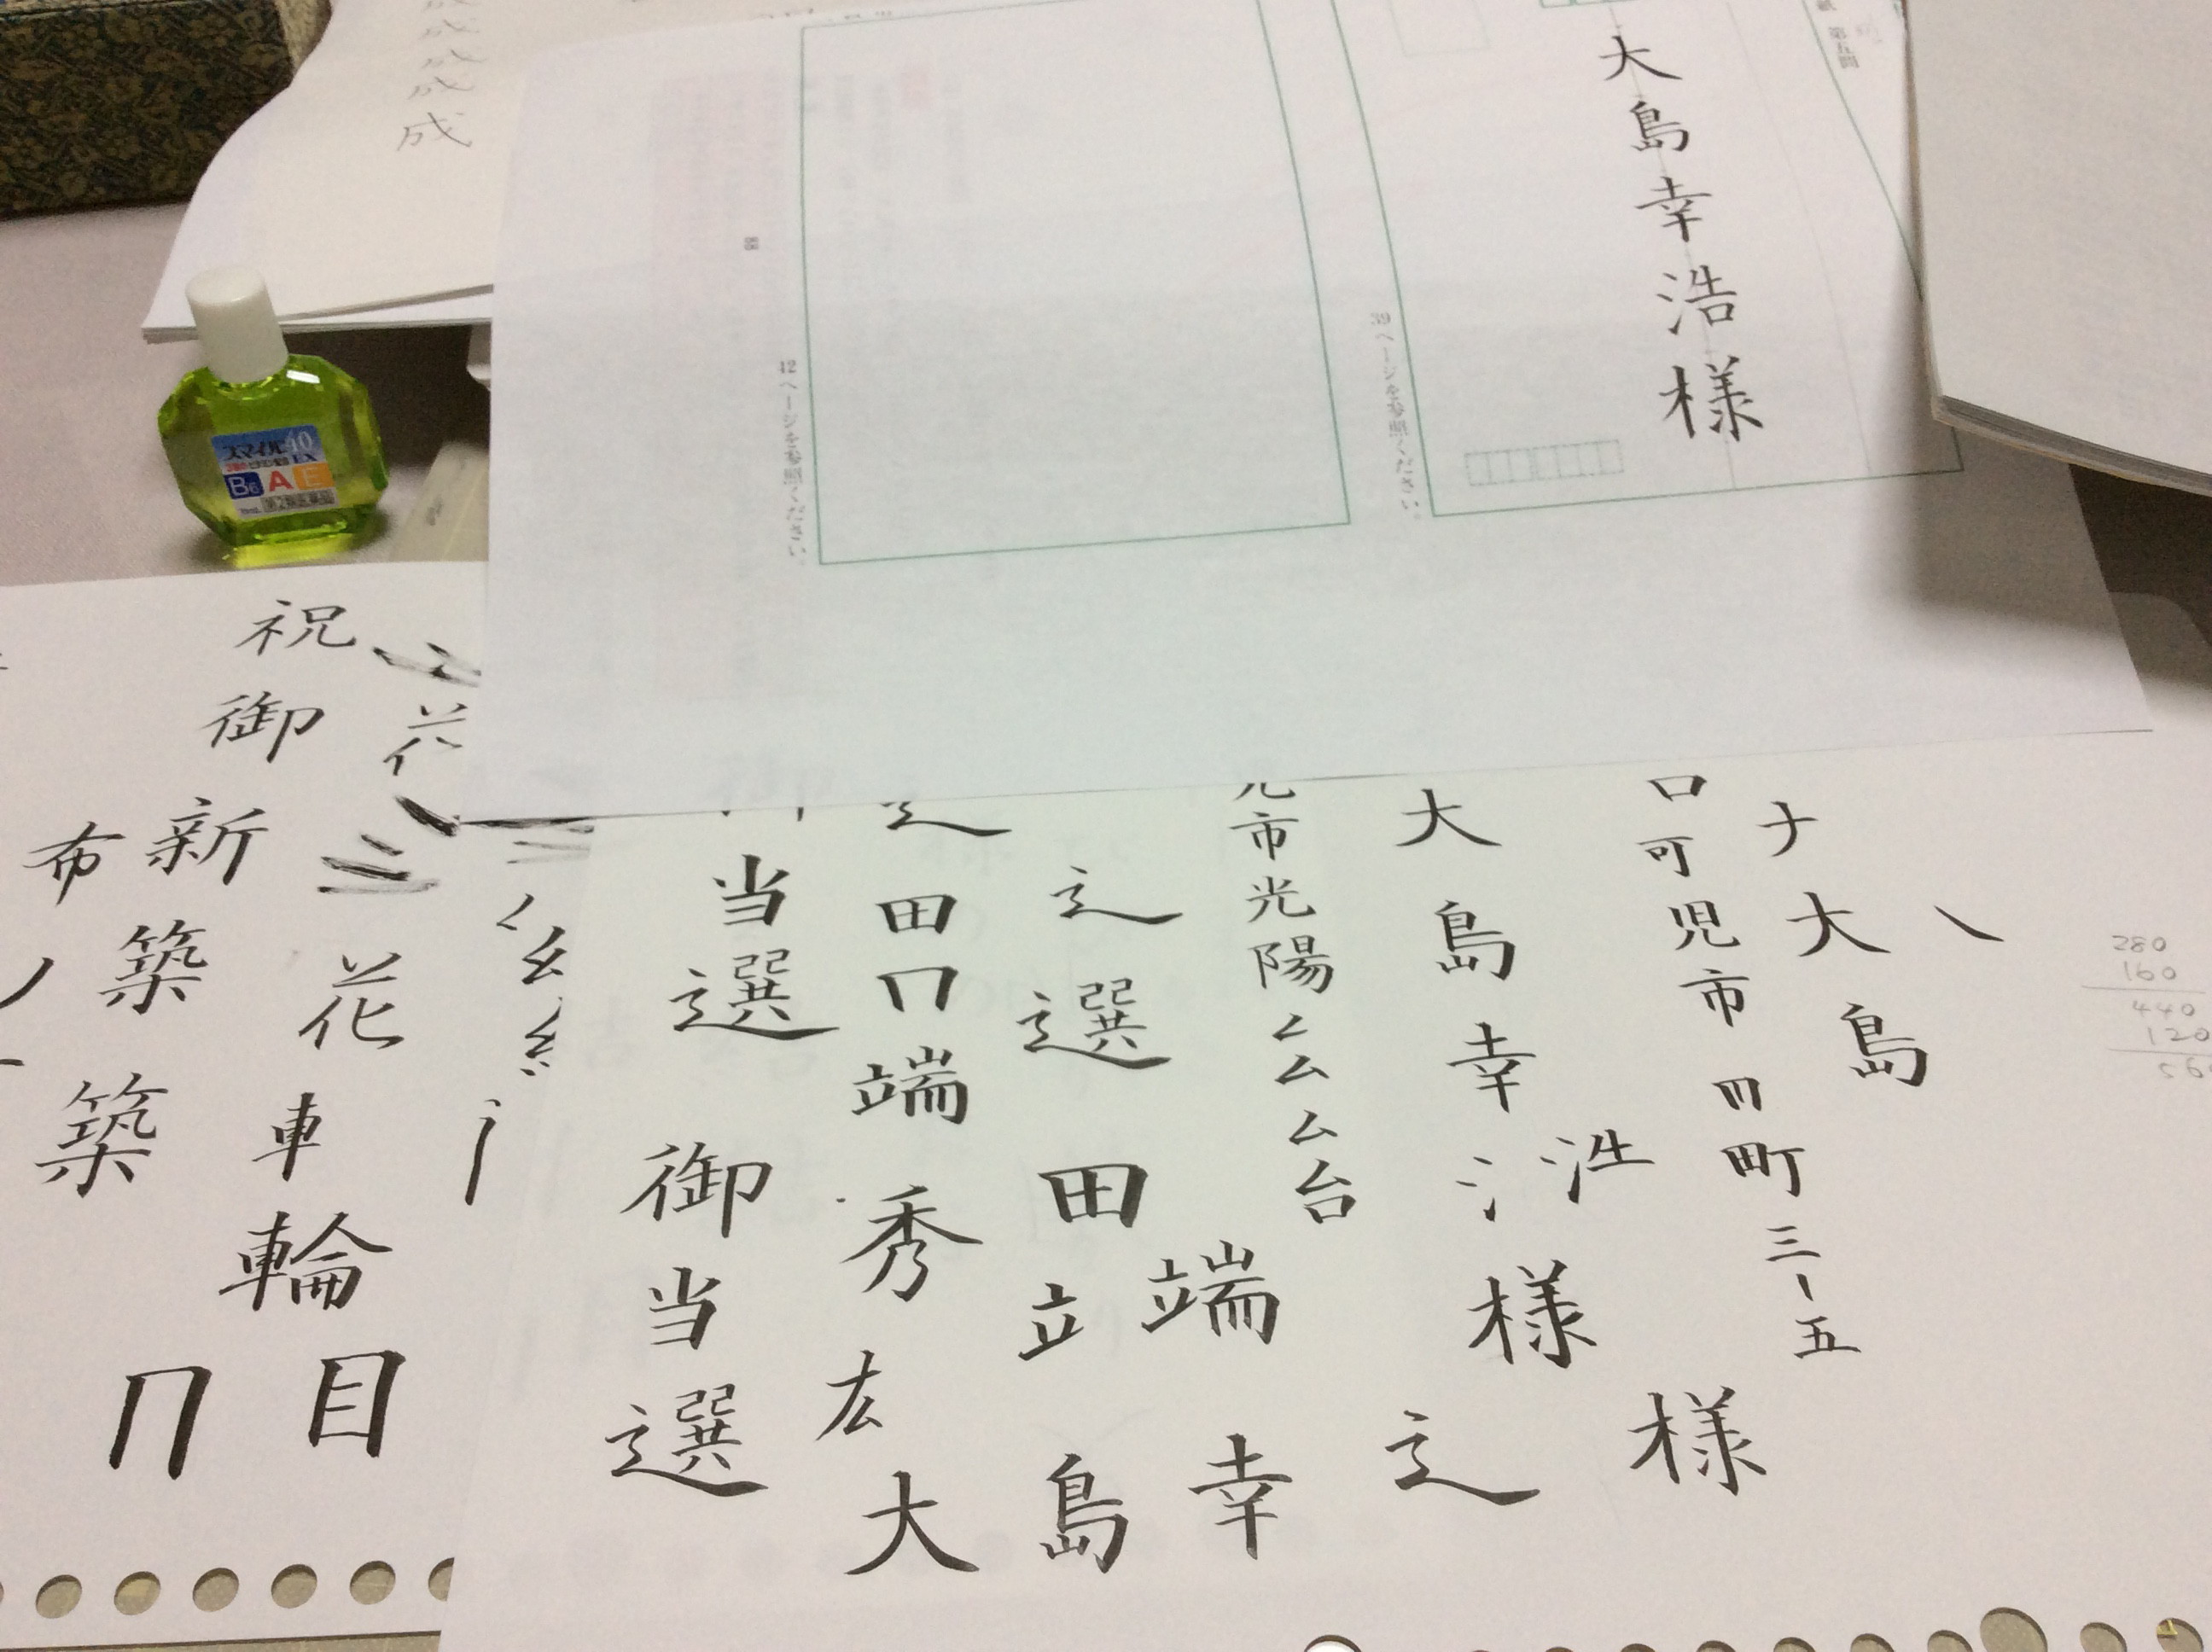 成
成
成
大島幸浩様
39ページを参照ください。
42ページを参照ください。
88
スマイル40
EX
B6 A E
第2類医薬品
大島
口可児市
町三-五
様
大島幸
様
市光陽
ム
ム
台
選
田
端
幸
島
立
田
端
秀
大
当
選
御
当
選
花
花
車
輪
目
祝
御
新
築
築
布
280
160
440
120